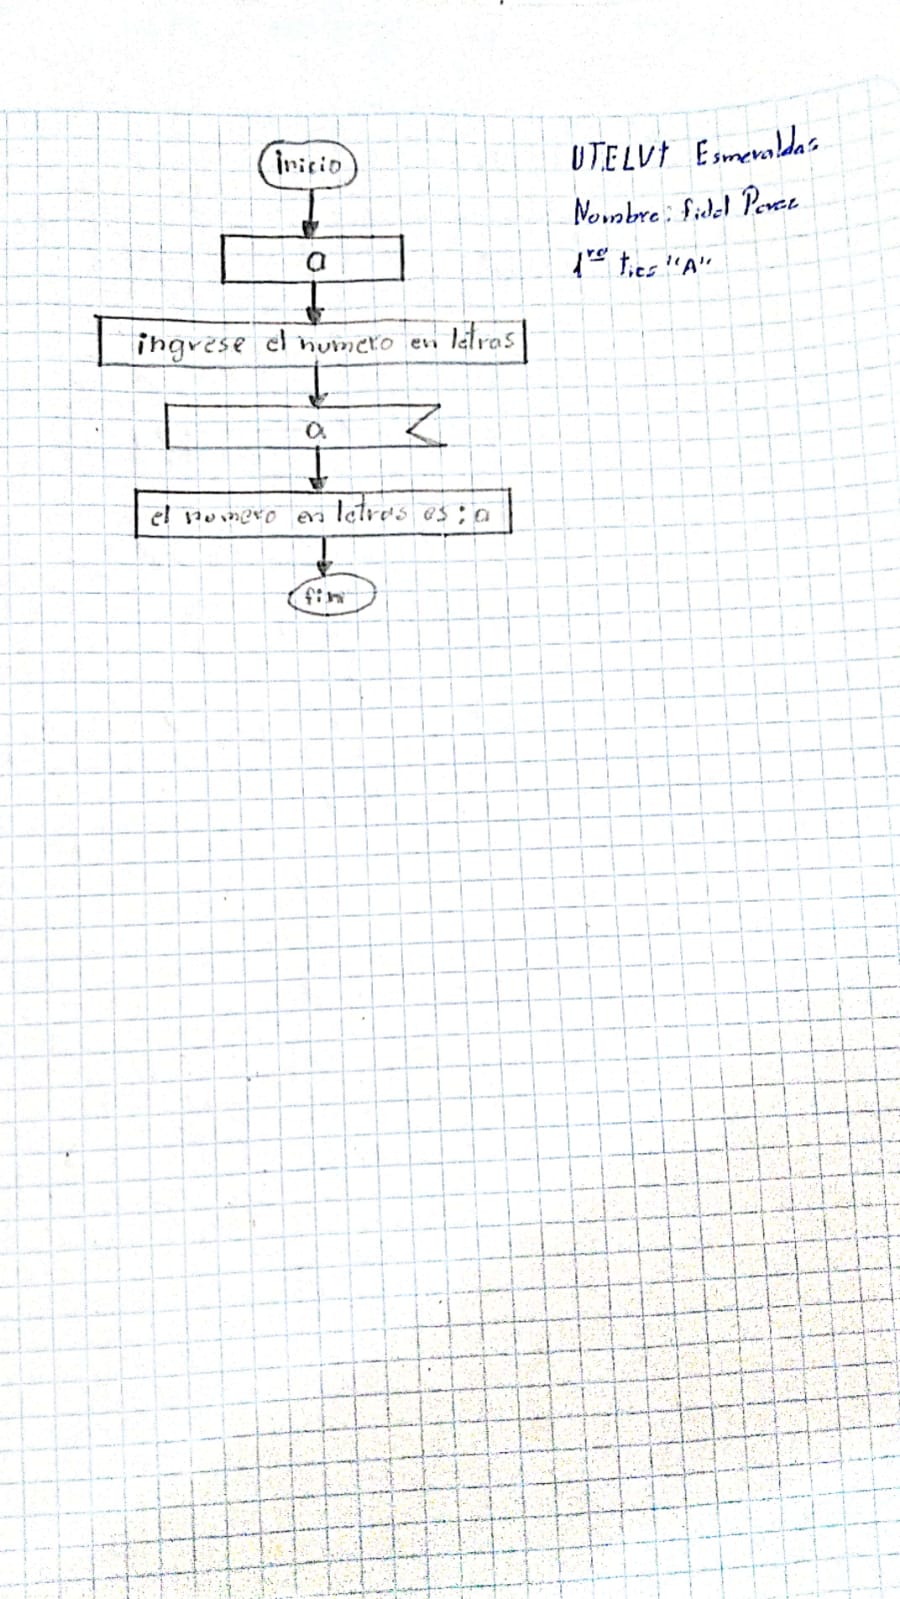 inicio
a
ingrese el numero en letras
a
el numero en letras es : a
fin
UTELVT Esmeraldas
Nombre: fidel Perez
1ro tics "A"